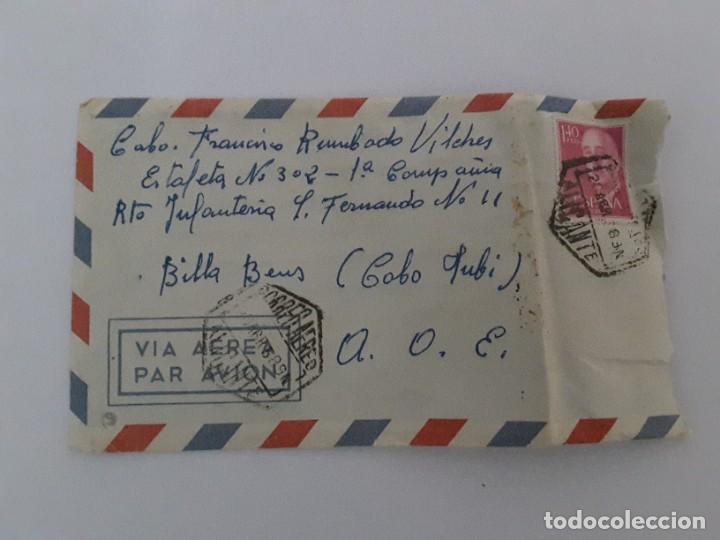 Cabo. Francisco Rumbado Vilches
Estafeta No 302 - 1ª Compañia
Rto Infanteria S. Fernando No 11
Billa Bens (Cabo Jubi)
A. O. E.
VIA AEREA
PAR AVION
CORREO AEREO
ALICANTE
1'40
PTAS
ALICANTE
todocoleccion